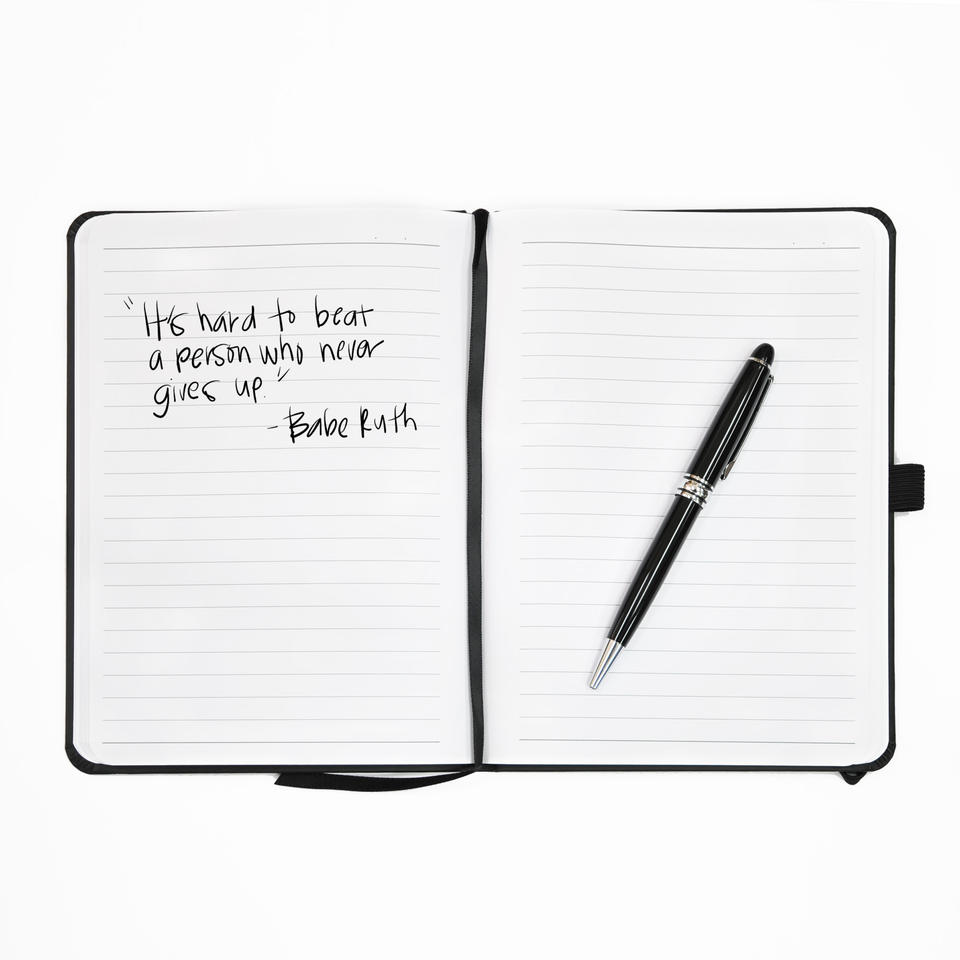 "It's hard to beat
a person who never
gives up."
-Babe Ruth